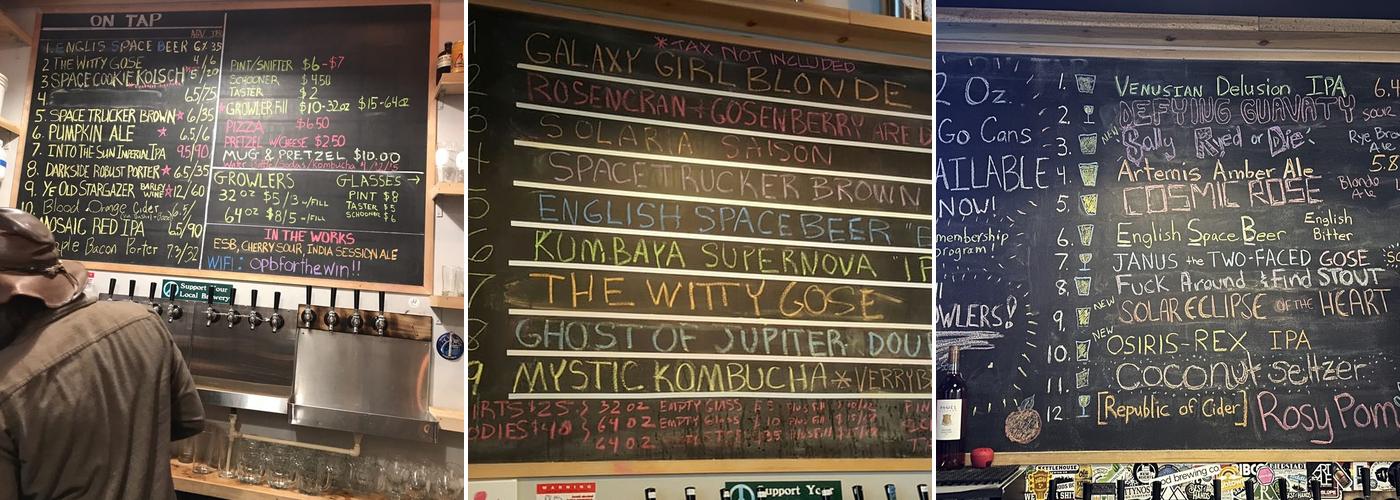 ON TAP
1. ENGLIS SPACE BEER 6/35
2 THE WITTY GOSE 4/6
3 SPACE COOKIE KOLSCH 5/20
4. 6.5/75
5. SPACE TRUCKER BROWN 6/35
6. PUMPKIN ALE 6.5/6
7. INTO THE SUN IMPERIAL IPA 9.5/90
8. DARKSIDE ROBUST PORTER 6.5/35
9. YE OLD STARGAZER BARLEY WINE 12/60
10. Blood Orange Cider 6.5/
MOSAIC RED IPA 6.5/90
Maple Bacon Porter 7.3/32
PINT/SNIFTER $6-$7
SCHOONER $4.50
TASTER $2
GROWLER Fill $10-32oz $15-64oz
PIZZA $6.50
PRETZEL W/CHEESE $2.50
MUG & PRETZEL $10.00
GROWLERS GLASSES →
32 OZ $5/3-/FILL
64 OZ $8/5-/FILL
PINT $8
TASTER $5
SCHOONER $6
IN THE WORKS
ESB, CHERRY SOUR, INDIA SESSION ALE
WIFI: opbforthewin!!
Support Your
Local Brewery
*TAX NOT INCLUDED
GALAXY GIRL BLONDE
ROSENCRAN + GOSENBERRY ARE D
SOLARIA SAISON
SPACE TRUCKER BROWN
ENGLISH SPACE BEER "E
KUMBAYA SUPERNOVA "IP
THE WITTY GOSE
GHOST OF JUPITER DOU
MYSTIC KOMBUCHA * VERRYB
IRTS $25 32 OZ EMPTY GLASS
ODIES $40 64 OZ EMPTY GLASS
64 OZ
WARNING
Support Your
2 Oz.
Go Cans
AILABLE
NOW!
membership
program!
WLERS!
1. VENUSIAN Delusion IPA 6.4
2. DEFYING GUAVATY SOUR
3. NEW Sally Ryed or Die Rye Bar
4. Artemis Amber Ale 5.8
5. COSMIC ROSE Blonde Ale
6. English Space Beer English Bitter
7. JANUS the TWO-FACED GOSE
8. Fuck Around & Find STOUT
9. NEW SOLAR ECLIPSE OF THE HEART
10. NEW OSIRIS-REX IPA
11. Coconut seltzer
12. [Republic of Cider] Rosy Pom
KETTLEHOUSE
od brewing co